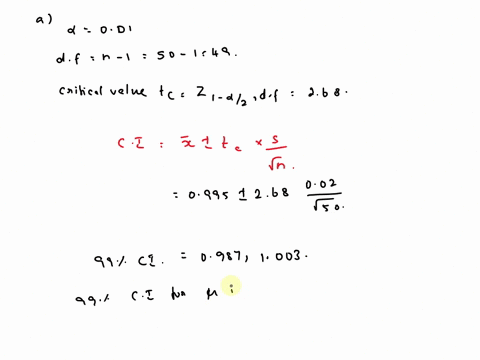 a)
α = 0.01
d.f = n-1 = 50-1 = 49.
critical value tc = Z 1-α/2, d.f = 2.68.
C.I = x̄ ± tc × s/√n.
= 0.995 ± 2.68 0.02/√50.
99% CI. = 0.987, 1.003.
99% C.I for μ i